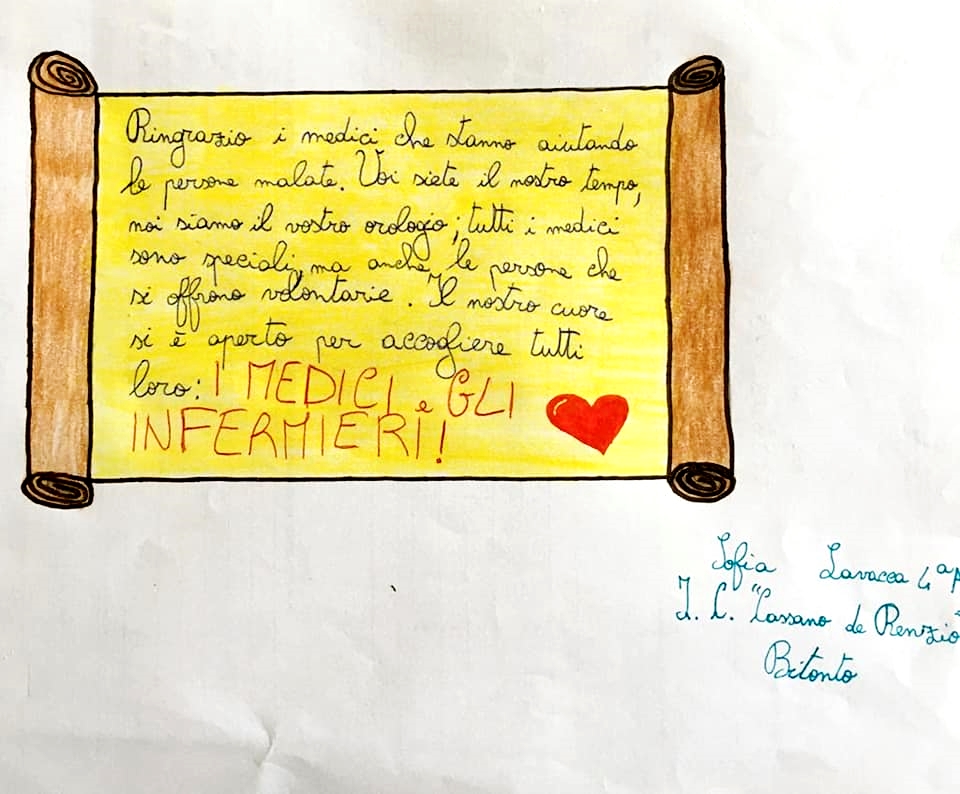 Ringrazio i medici che stanno aiutando
le persone malate. Voi siete il nostro tempo,
noi siamo il vostro orologio; tutti i medici
sono speciali, ma anche le persone che
si offrono volontarie. Il nostro cuore
si è aperto per accogliere tutti
loro: I MEDICI e GLI
INFERMIERI!
Sofia Lavacca 4ª A
I. C. "Cassano de Renzio"
Bitonto